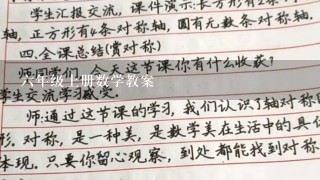 学生汇报交流,课件演示:长方形有2条
轴,正方形有4条对称轴,圆有无数条对称轴.
四.全课总结(赏对称)
今天这节课你有什么收获?
六年级上册数学教案
学生交流学习感受.
师:通过这节课的学习,我们认识了轴对称
形.对称,是一种美,是数学美在生活中的具
体现.只要你留心观察,到处都能找到对称